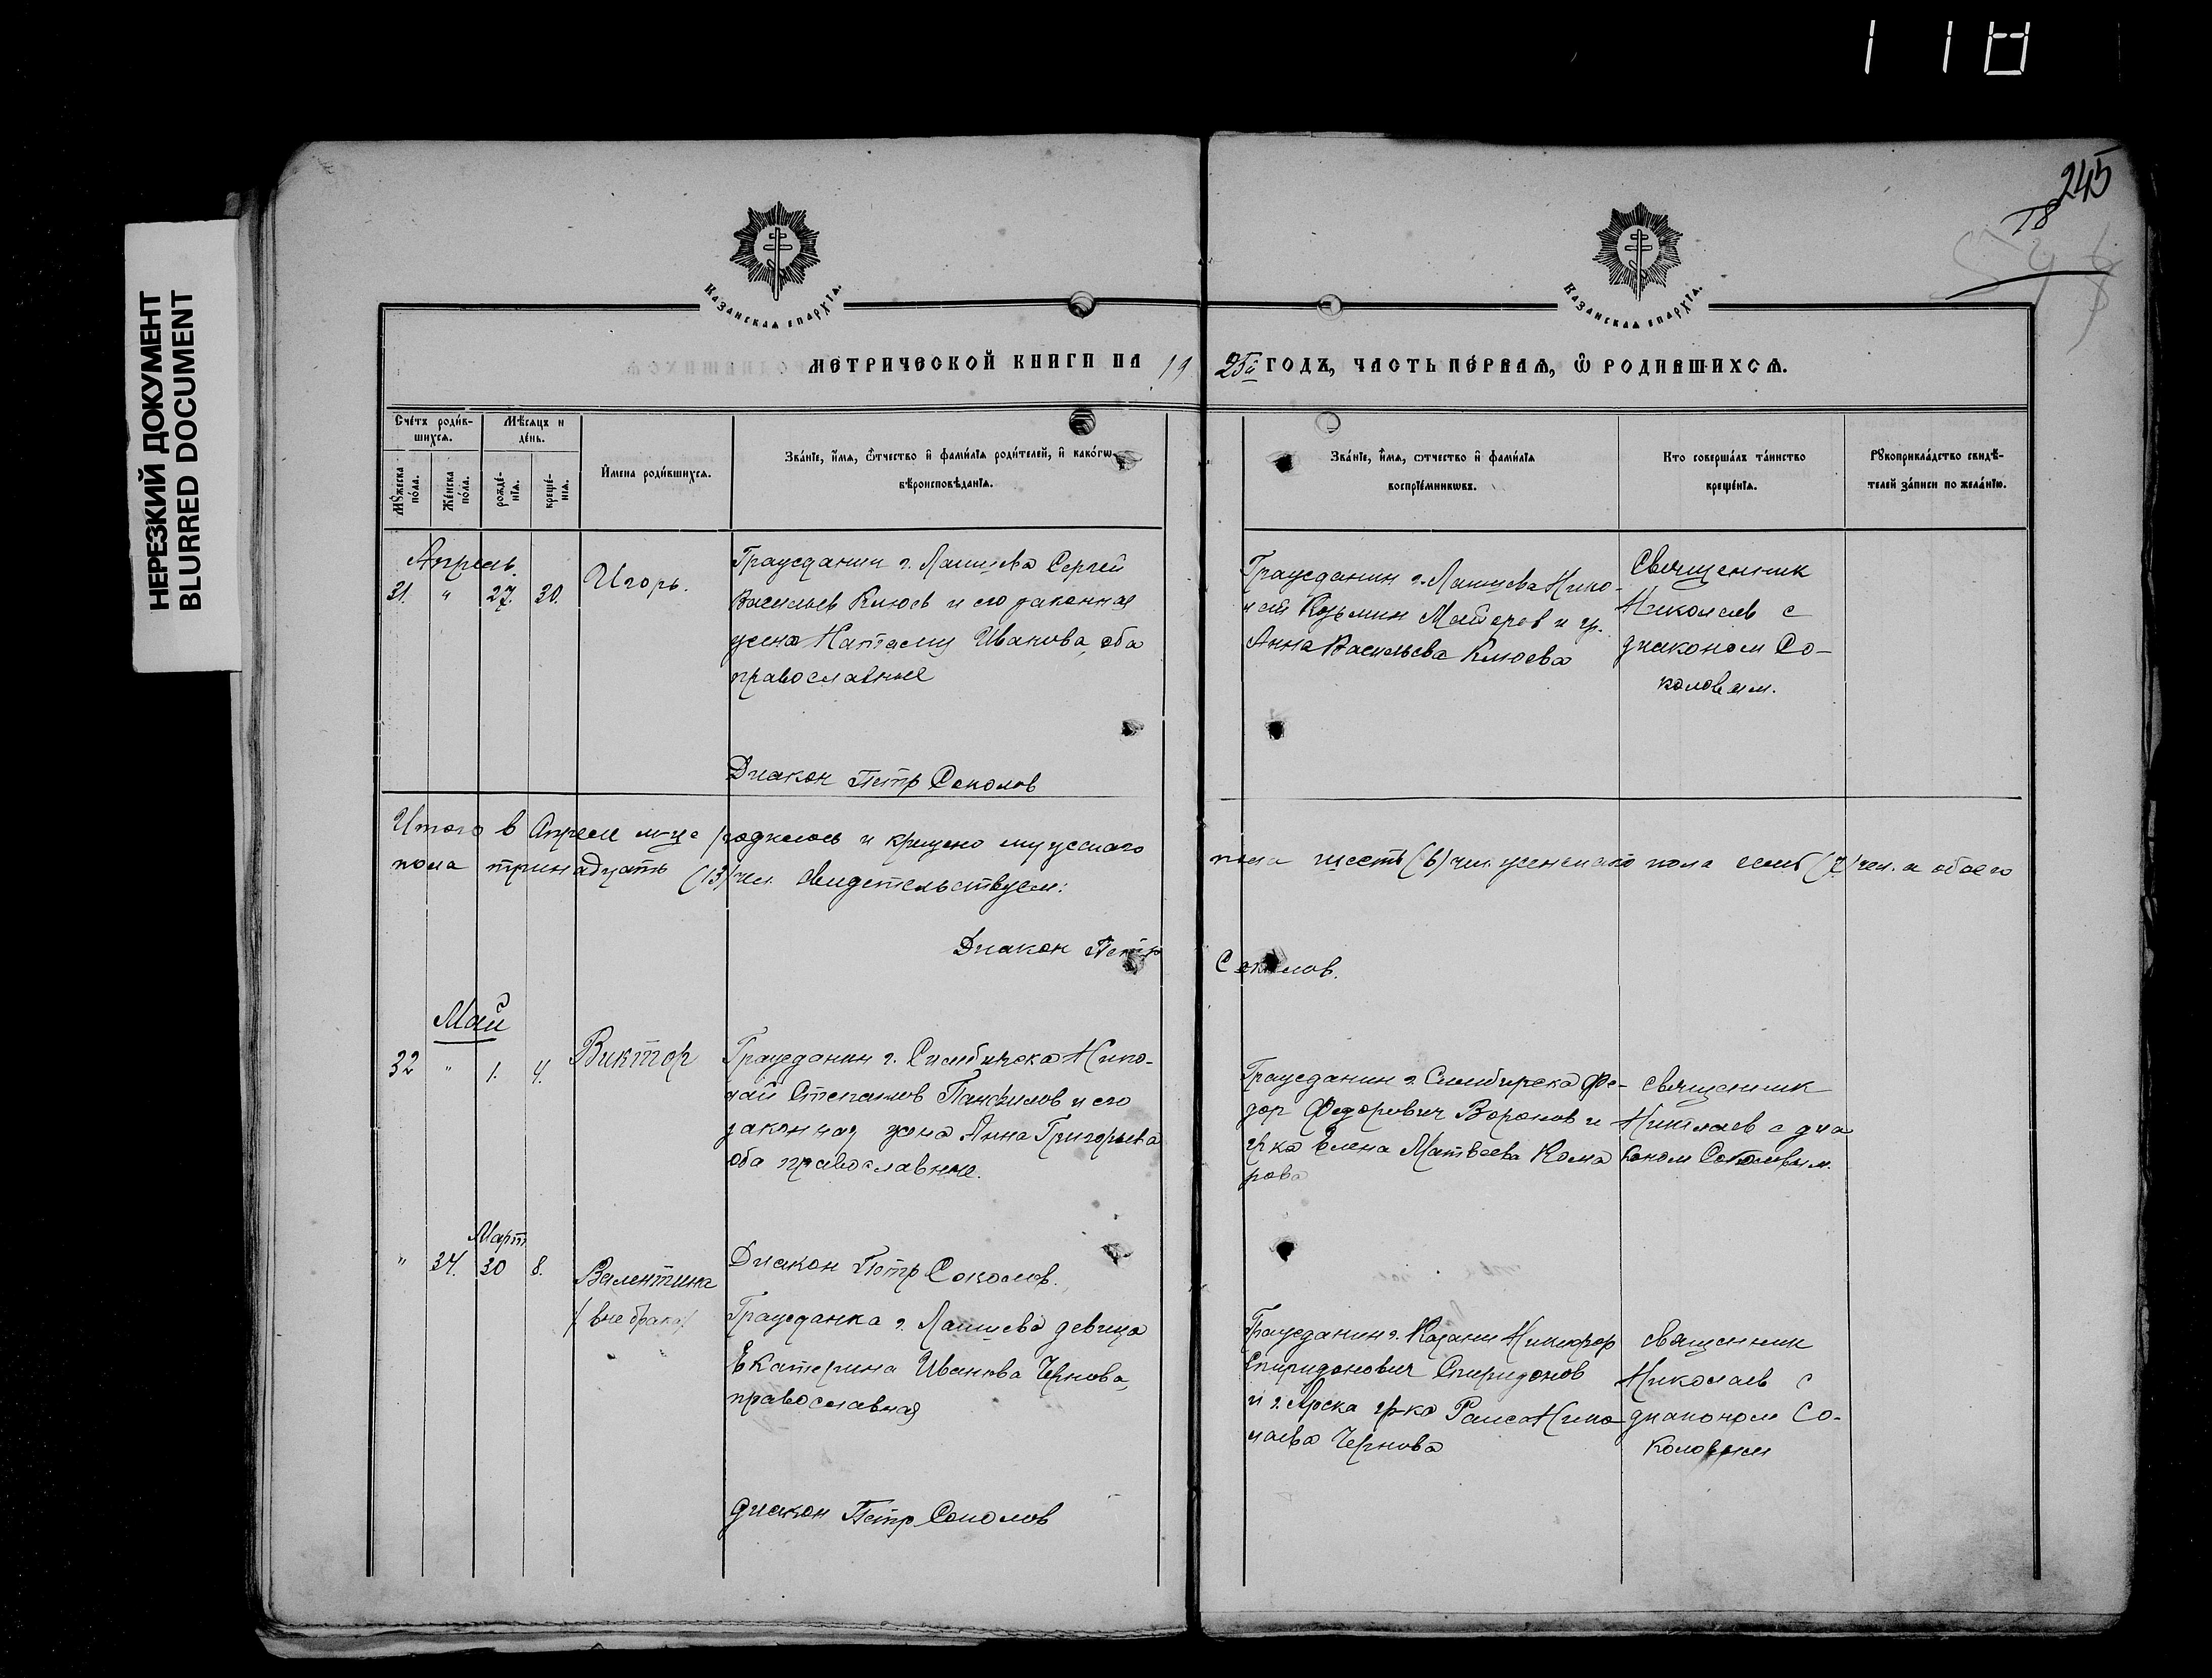 118
НЕРЕЗКИЙ ДОКУМЕНТ
BLURRED DOCUMENT
245
78
Казанская епархїѧ.
Казанская епархїѧ.
МЕТРИЧЕСКОЙ КНИГИ НА 1925й ГОДЪ, ЧАСТЬ ПЕ́РВАѦ, Ѽ РОДИВШИХСѦ.
Сче́тъ роди́в-
шихсѧ.
Мѣ́сѧцъ и
де́нь.
Мꙋ́жеска
по́ла.
Же́нска
по́ла.
рожде́-
нїѧ.
креще́-
нїѧ.
Имена роди́вшихсѧ.
Зва́нїе, и́мѧ, ѻ҆́тчество и҆ фами́лїѧ роди́телей, и҆ како́гѡ
вѣроисповѣ́данїѧ.
Зва́нїе, и́мѧ, ѻтчество и҆ фами́лїѧ
воспрїе́мникѡвъ.
Кто совершáлъ та́инство
креще́нїѧ.
Рꙋкоприкла́дство свидѣ́-
телей за́писи по жела́нїю.
Апрель.
31. " 27. 30. Игорь.
Гражданин г. Лаишева Сергей
Васильев Клюев и его законная
жена Наталия Иванова, оба
православные
Гражданин г. Лаишева Нико-
лай Козьмин Майоров и гр.
Анна Васильева Клюева
Священник
Николаев с
диаконом Со-
коловым.
Диакон Петр Соколов
Итого в Апреле м-це родилось и крещено мужескаго пола шесть (6) чел. женскаго пола семь (7) чел. а обоего
пола тринадцать (13) чел. свидетельствуем:
Диакон Петр Соколов.
Май
32 " 1. 4. Виктор
Гражданин г. Симбирска Нико-
лай Степанов Панфилов и его
законная жена Анна Григорьева
оба православные.
Гражданин г. Симбирска Фе-
дор Федорович Воронов и
гр-ка Елена Матвеева Кома
рова
священник
Николаев с диа
коном Соколовым.
Диакон Петр Соколов.
Март
" 34. 30 8. Валентина
/вне брака/
Гражданка г. Лаишева девица
Екатерина Иванова Чернова,
православная
Гражданин г. Казани Никифор
Спиридонович Спиридонов
и г. Арска гр-ка Раиса Нико-
лаева Чернова
священник
Николаев с
диаконом Со-
коловым
диакон Петр Соколов